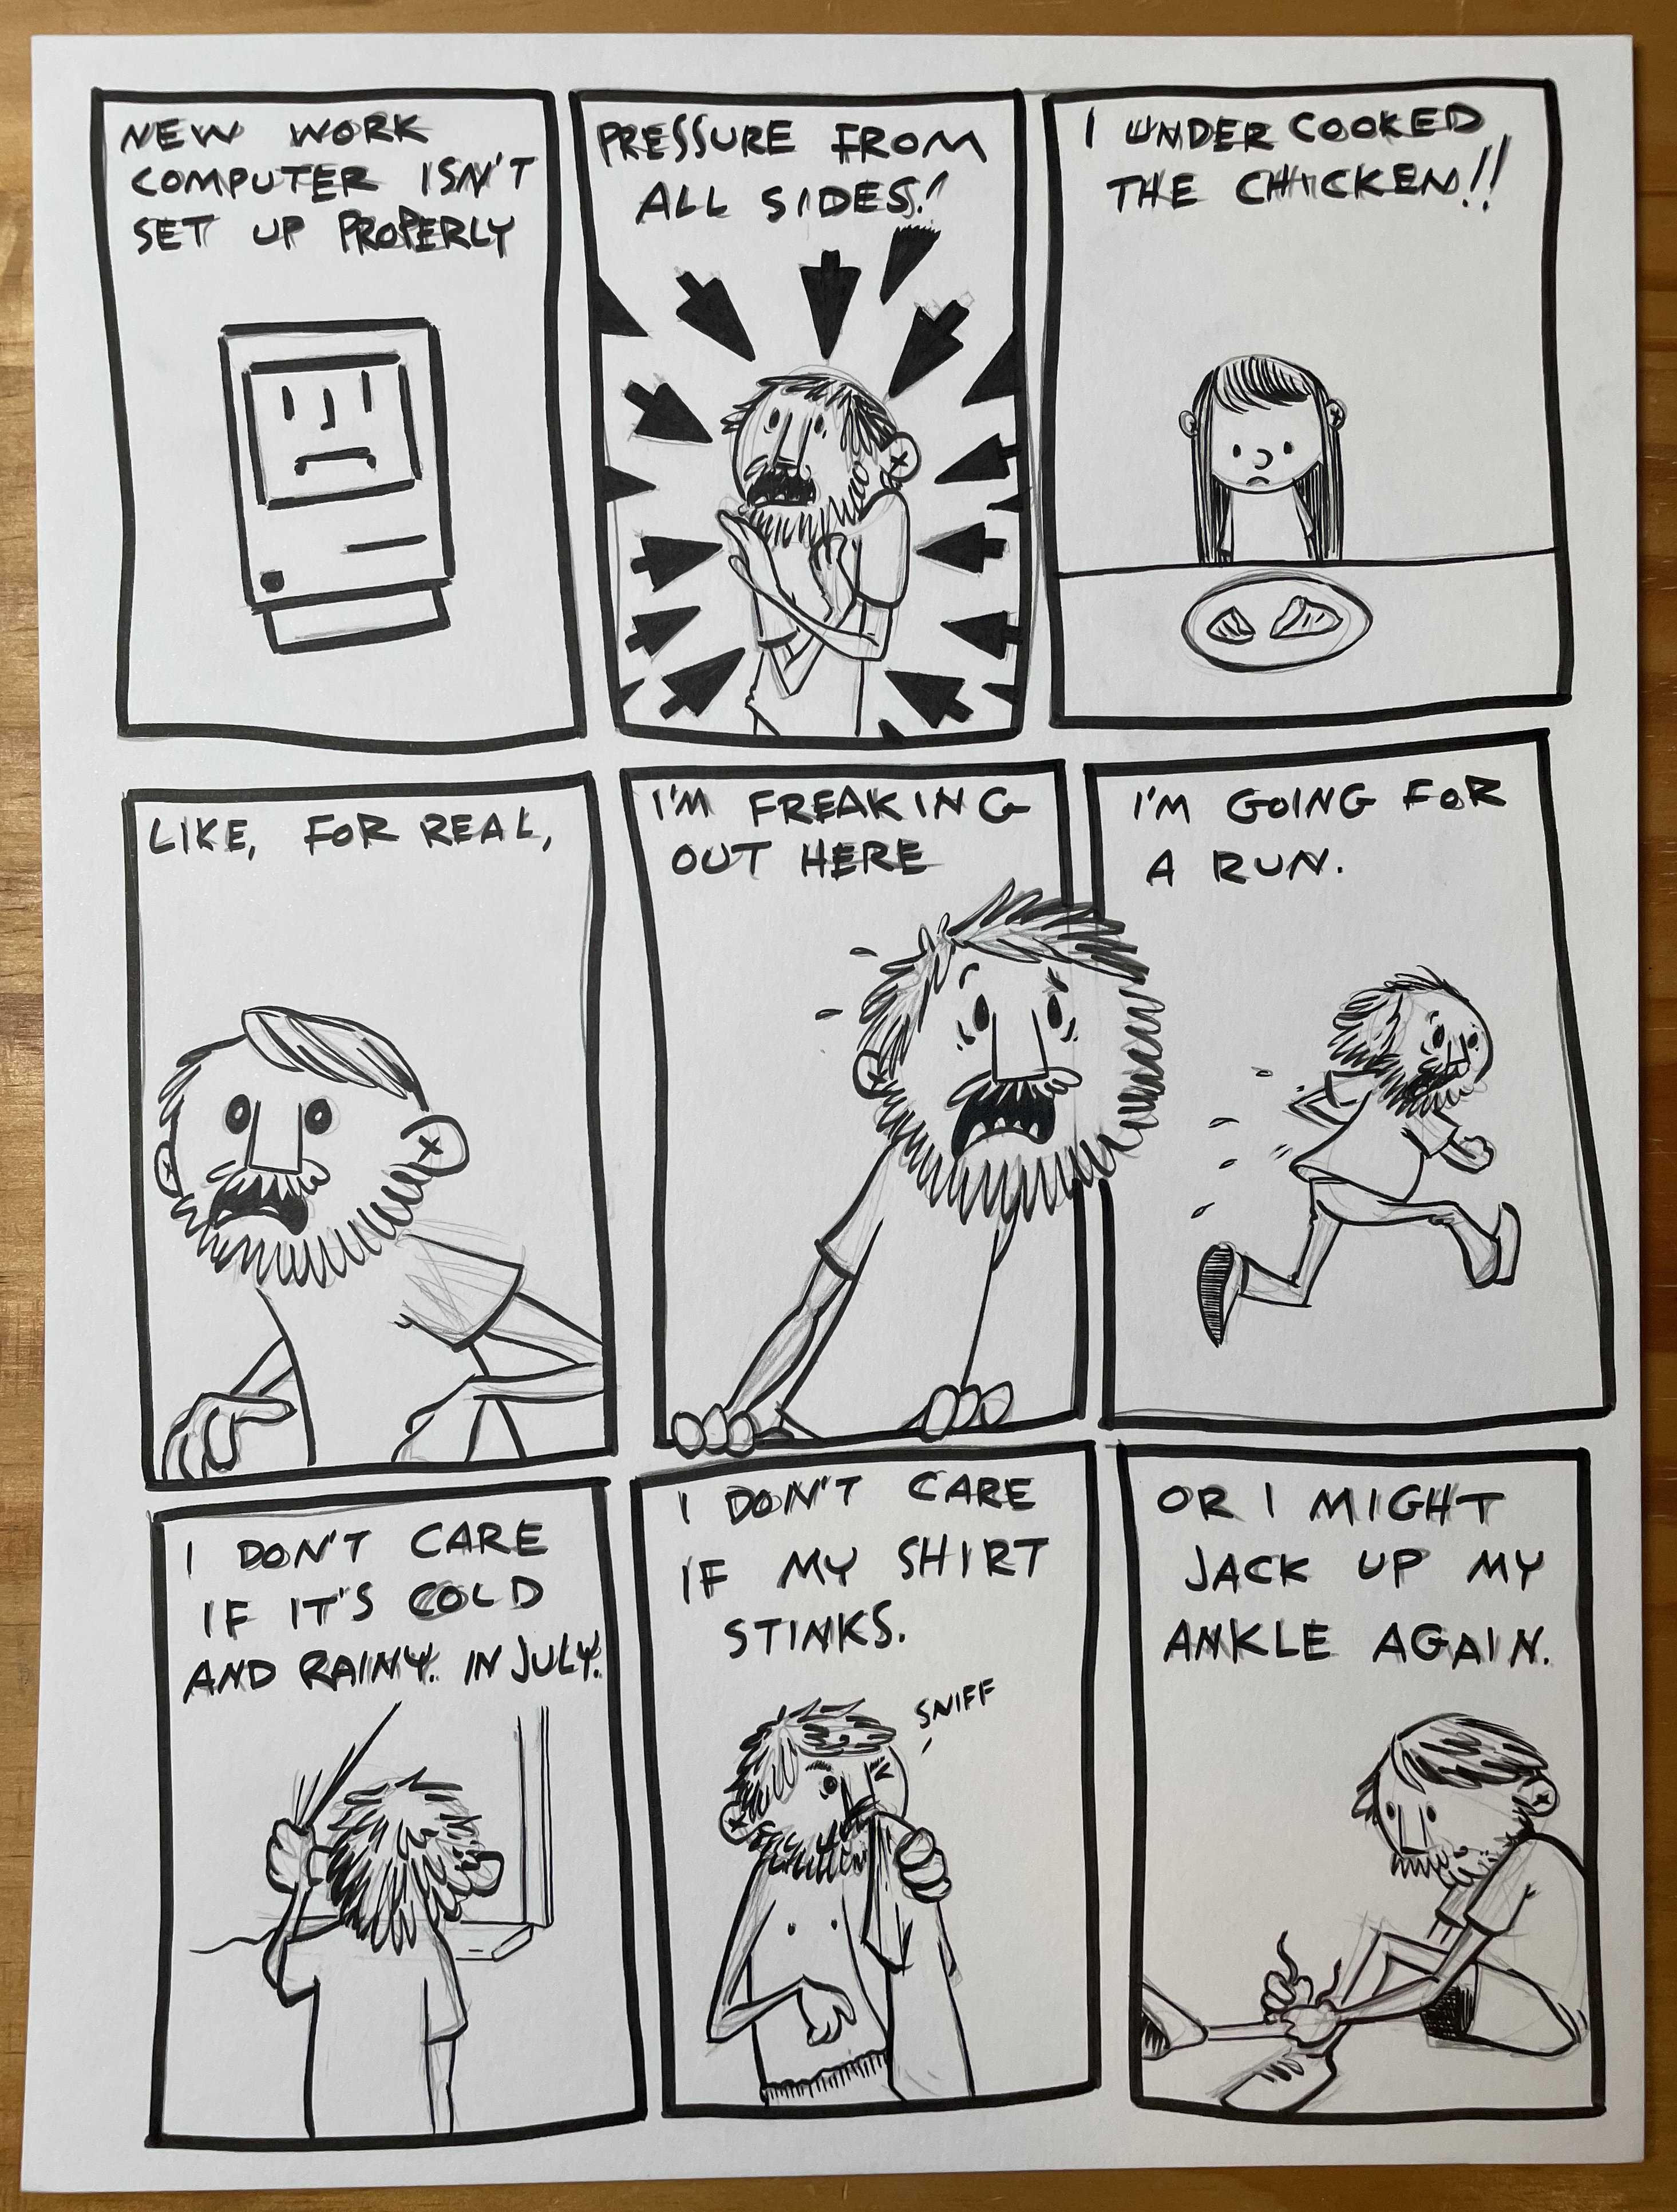 NEW WORK
COMPUTER ISN'T
SET UP PROPERLY
PRESSURE FROM
ALL SIDES!
I UNDER COOKED
THE CHICKEN!!
LIKE, FOR REAL,
I'M FREAKING
OUT HERE
I'M GOING FOR
A RUN.
I DON'T CARE
IF IT'S COLD
AND RAINY. IN JULY.
I DON'T CARE
IF MY SHIRT
STINKS.
SNIFF
OR I MIGHT
JACK UP MY
ANKLE AGAIN.